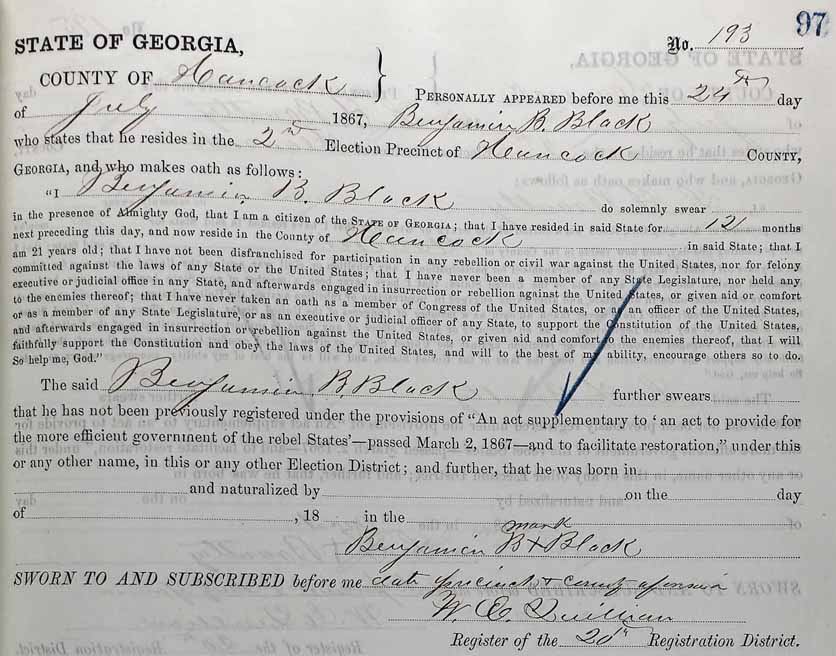 97
No. 193
STATE OF GEORGIA,
COUNTY OF Hancock }
PERSONALLY APPEARED before me this 24th day
of July 1867, Benjamin B. Black
who states that he resides in the 2nd Election Precinct of Hancock COUNTY,
GEORGIA, and who makes oath as follows:
"I Benjamin B. Black do solemnly swear
in the presence of Almighty God, that I am a citizen of the STATE OF GEORGIA; that I have resided in said State for 12 months
next preceding this day, and now reside in the County of Hancock in said State; that I
am 21 years old; that I have not been disfranchised for participation in any rebellion or civil war against the United States, nor for felony
committed against the laws of any State or the United States; that I have never been a member of any State Legislature, nor held any
executive or judicial office in any State, and afterwards engaged in insurrection or rebellion against the United States, or given aid or comfort
to the enemies thereof; that I have never taken an oath as a member of Congress of the United States, or as an officer of the United States,
or as a member of any State Legislature, or as an executive or judicial officer of any State, to support the Constitution of the United States,
and afterwards engaged in insurrection or rebellion against the United States, or given aid and comfort to the enemies thereof, that I will
faithfully support the Constitution and obey the laws of the United States, and will to the best of my ability, encourage others so to do.
So help me, God."
The said Benjamin B. Black further swears
that he has not been previously registered under the provisions of "An act supplementary to 'an act to provide for
the more efficient government of the rebel States'—passed March 2, 1867—and to facilitate restoration," under this
or any other name, in this or any other Election District; and further, that he was born in
and naturalized by on the day
of , 18 in the
mark
Benjamin B + Black
SWORN TO AND SUBSCRIBED before me date precinct & county aforesaid
W. C. Quillian
Register of the 20th Registration District.